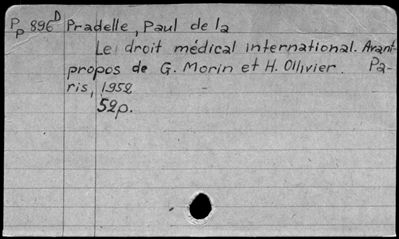 Pp 896 D Pradelle, Paul de la
Le droit médical international. Avant-
propos de G. Morin et H. Ollivier. Pa-
ris, 1952
52p.